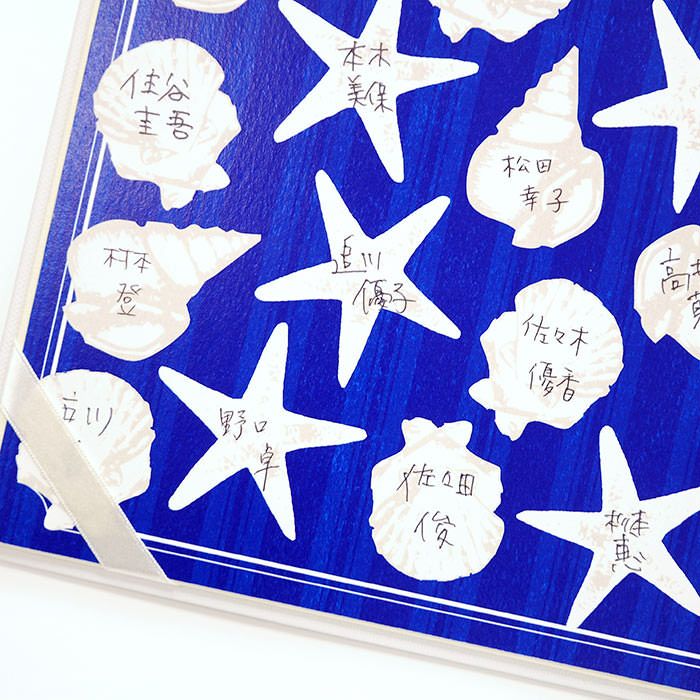 本木
美保
佳谷
圭吾
松田
幸子
村本
登
追川
優子
佐々木
優香
立川
野口
卓
佐久田
俊
恵